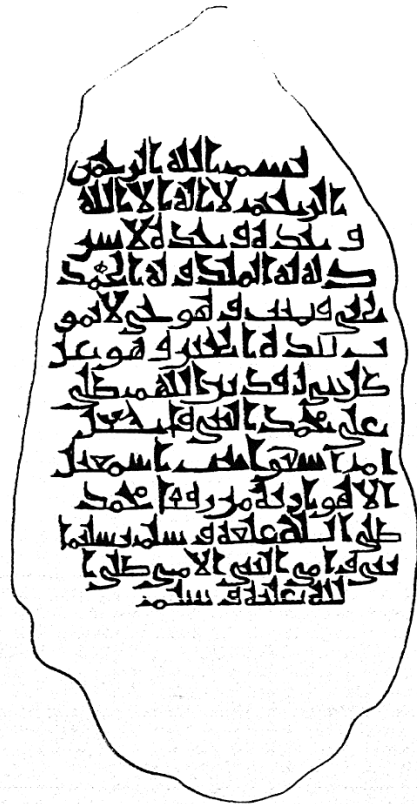 بسم الله الرحمن
الرحيم لا اله الا الله
وحده وحده لا شر
يك له له الملك وله الحمد
يحيي ويميت وهو حي لا يمو
ت بيده الخير وهو على
كل شي قدير اللهم صلي
على محمد النبي
اسمعيل
الا هو محمد
صلى الله عليه وسلم تسليما
النبي الامي صلى ا
لله عليه وسلم